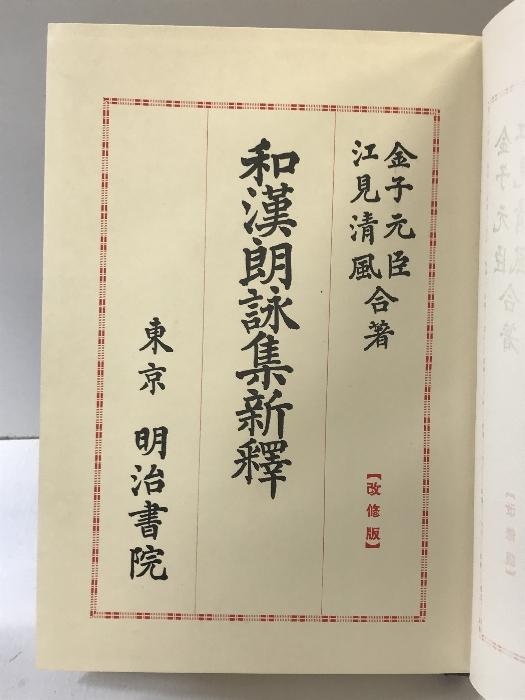 金子元臣
江見清風
合著
【改修版】
和漢朗詠集新釋
東京 明治書院